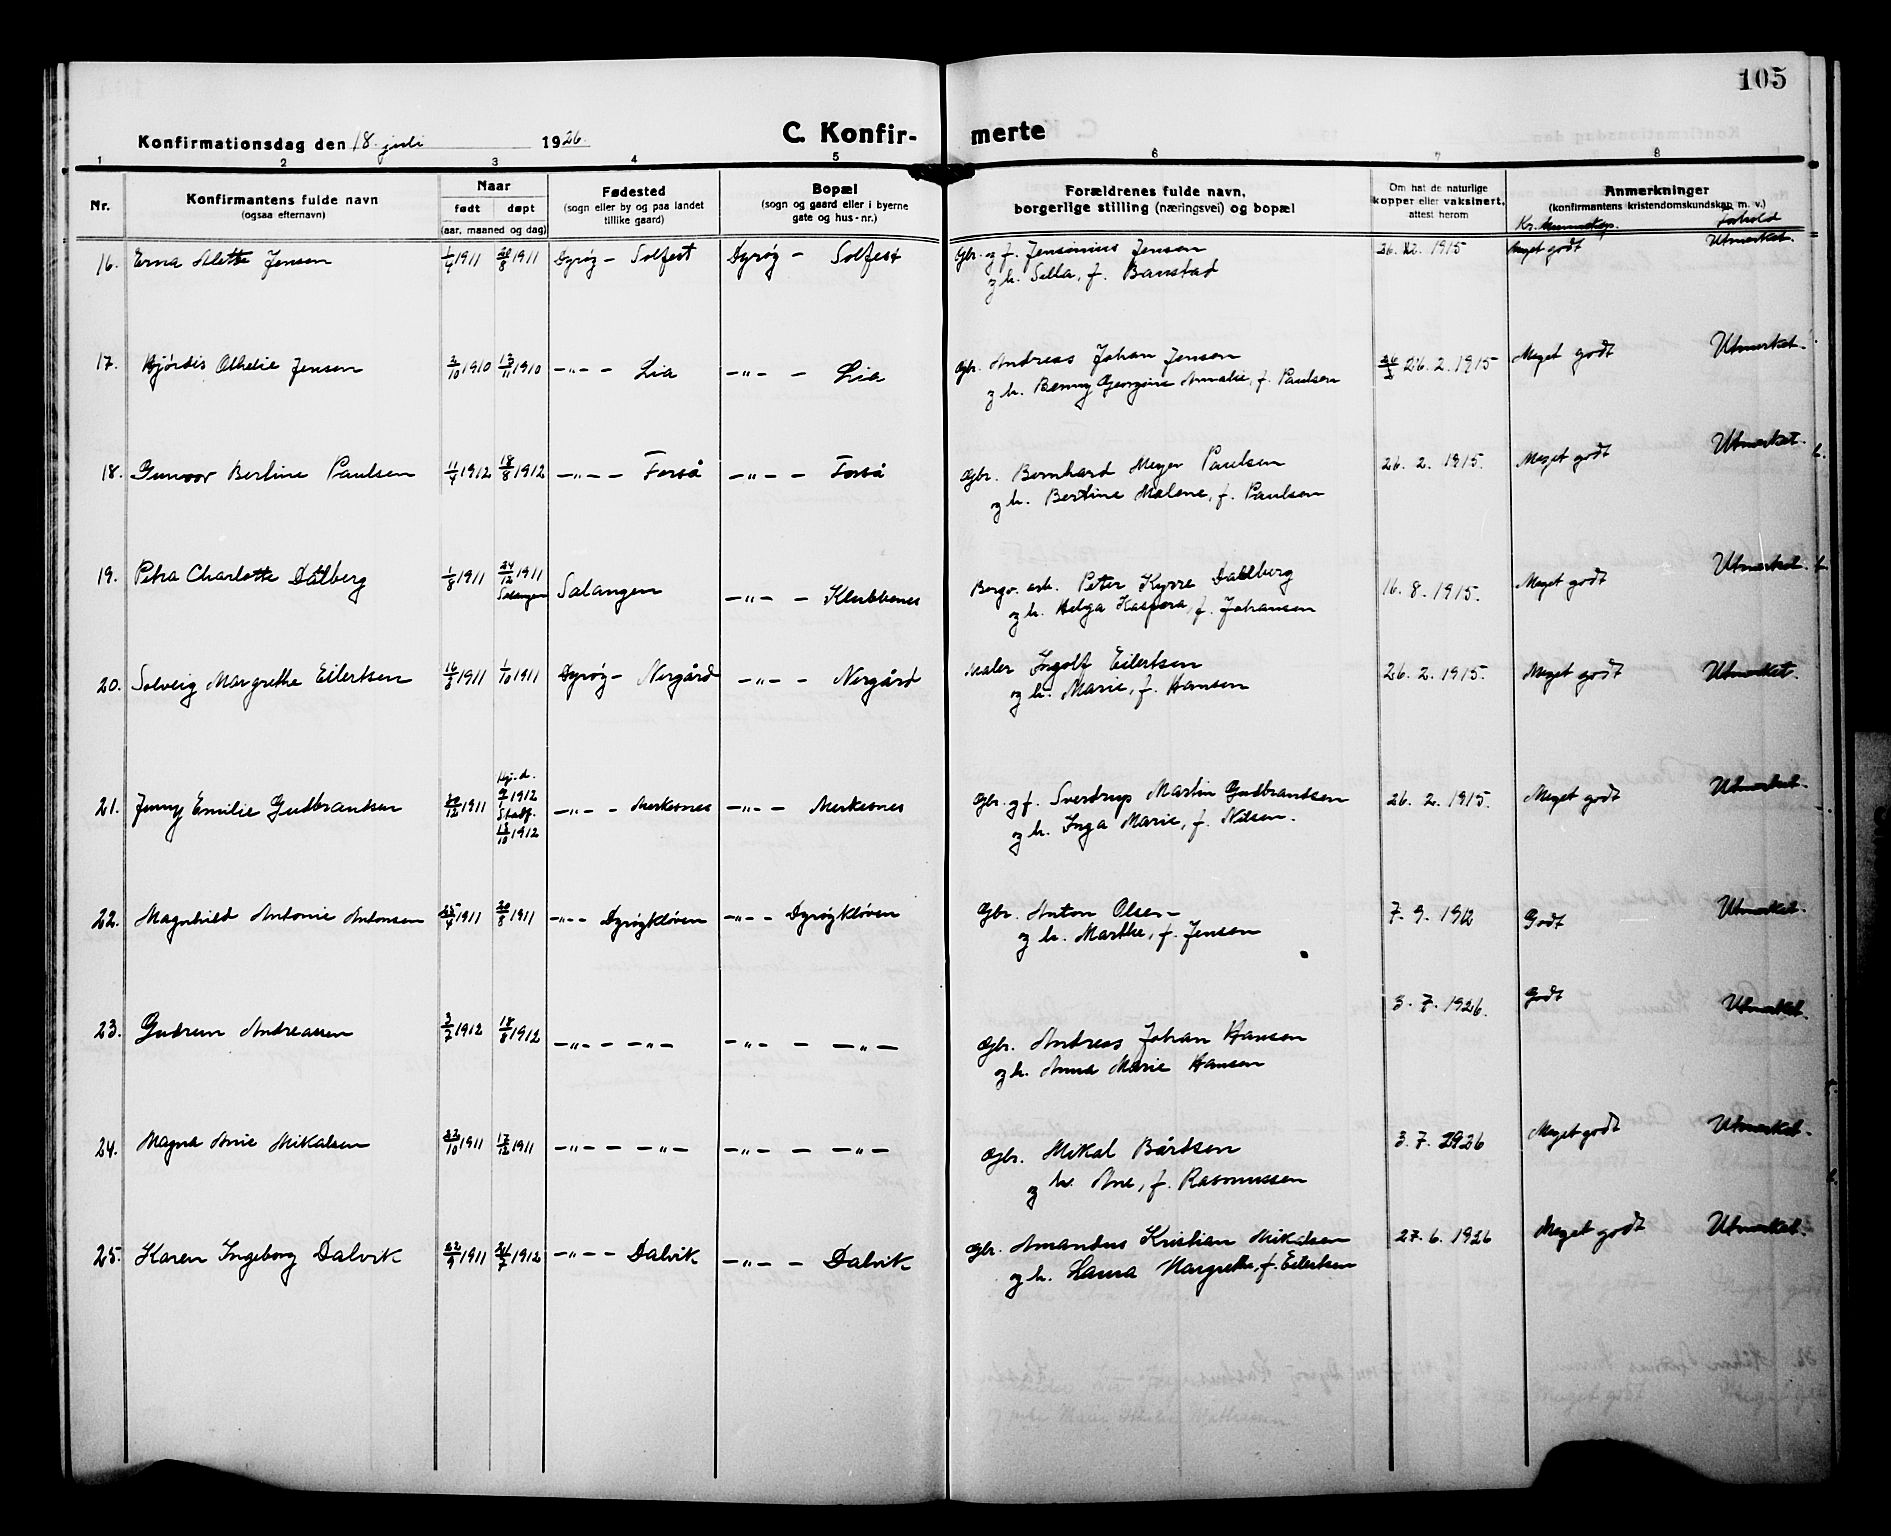 105
Konfirmationsdag den 18. juli 1926.
C. Konfir- merte
1 2 3 4 5 6 7 8
Nr. Konfirmantens fulde navn (ogsaa efternavn) Naar født døpt (aar, maaned og dag) Fødested (sogn eller by og paa landet tillike gaard) Bopæl (sogn og gaard eller i byerne gate og hus-nr.) Forældrenes fulde navn, borgerlige stilling (næringsvei) og bopæl Om hat de naturlige kopper eller vaksinert, attest herom Anmerkninger (konfirmantens kristendomskundskap m. v.)
Kr. kunnskap. Forhold
16. Erna Alette Jensen 1/4 1911 20/8 1911 Dyrøy – Solfest Dyrøy – Solfest Gbr. og f. Jensenius Jensen 26. 2. 1915 Meget godt Utmerket.
og h. Sella, f. Baustad
17. Hjørdis Othelie Jensen 2/10 1910 13/11 1910 –„– – Lia –„– – Lia Gbr. Andreas Johan Jensen 26. 2. 1915 Meget godt Utmerket.
og h. Benny Georgine Amalie, f. Paulsen
18. Gunvor Bertine Paulsen 11/4 1912 18/8 1912 –„– – Forså –„– – Forså Gbr. Bernhard Meyer Paulsen 26. 2. 1915. Meget godt Utmerket.
og h. Bertine Malene, f. Paulsen
19. Petra Charlotte Dalberg 1/8 1911 24/12 1911 Salangen Salangen –„– – Klubbenes Bergv. arb. Peter Kyrre Dahlberg 16. 8. 1915. Meget godt Utmerket.
og h. Helga Kaspara, f. Johansen
20. Solveig Margrethe Eilertsen 16/8 1911 1/10 1911 Dyrøy – Nergård –„– – Nergård Maler Ingolf Eilertsen 26. 2. 1915. Meget godt Utmerket.
og h. Marie, f. Hansen
21. Jenny Emilie Gudbrandsen 30/12 1911 Hj. d. 7/1 1912 Stadf. 13/10 1912 –„– – Merkesnes –„– – Merkesnes Gbr. og f. Sverdrup Martin Gudbrandsen 26. 2. 1915. Meget godt Utmerket.
og h. Inga Marie, f. Nilsen.
22. Magnhild Antonie Antonsen 25/4 1911 20/8 1911 –„– – Dyrøykløven –„– – Dyrøykløven Gbr. Anton Olsen 7. 9. 1912 Godt Utmerket.
og h. Marthe, f. Jensen
23. Gudrun Andreassen 3/2 1912 18/8 1912 –„– – –„– –„– – –„– Gbr. Andreas Johan Hansen 3. 7. 1926. Godt Utmerket.
og h. Anna Marie Hansen
24. Magna Anie Mikalsen 22/10 1911 17/12 1911 –„– – –„– –„– – –„– Gbr. Mikal Bårdsen 3. 7. 1926 Meget godt Utmerket.
og h. Ane, f. Rasmussen
25. Karen Ingeborg Dalvik 22/9 1911 21/7 1912 –„– – Dalvik –„– – Dalvik Gbr. Amandus Kristian Mikalsen 27. 6. 1926 Meget godt Utmerket.
og h. Laura Margrethe, f. Eilertsen